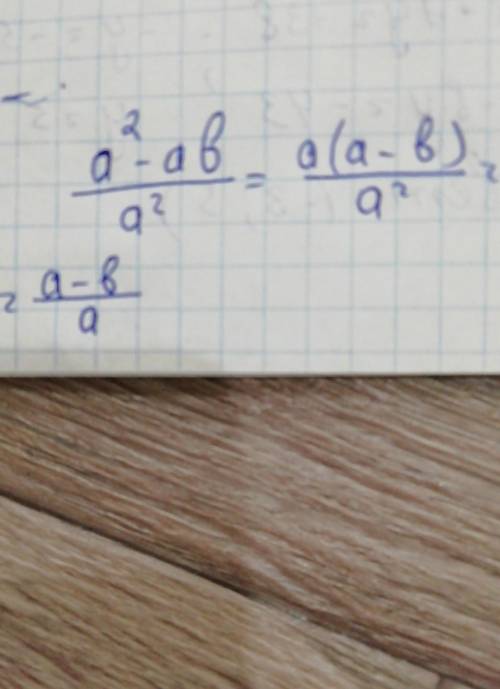 a² - ab / a² = a(a - b) / a² =
= a - b / a